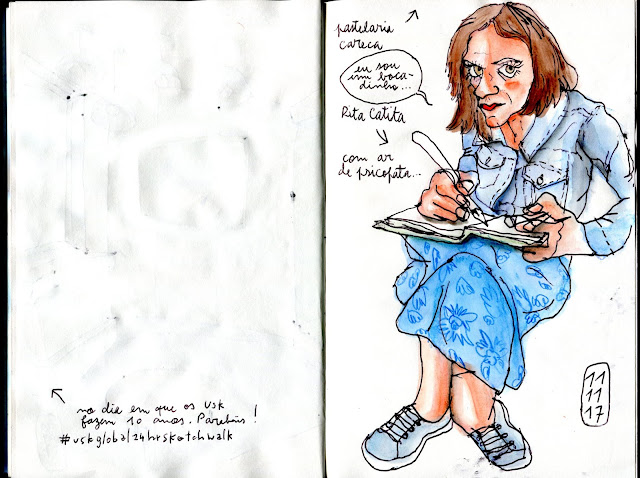 no dia em que os usk
fazem 10 anos. Parabéns!
#uskglobal24hrsketchwalk
pastelaria
careca
eu sou
um boca-
dinho...
Rita Catita
com ar
de psicopata...
11
11
17